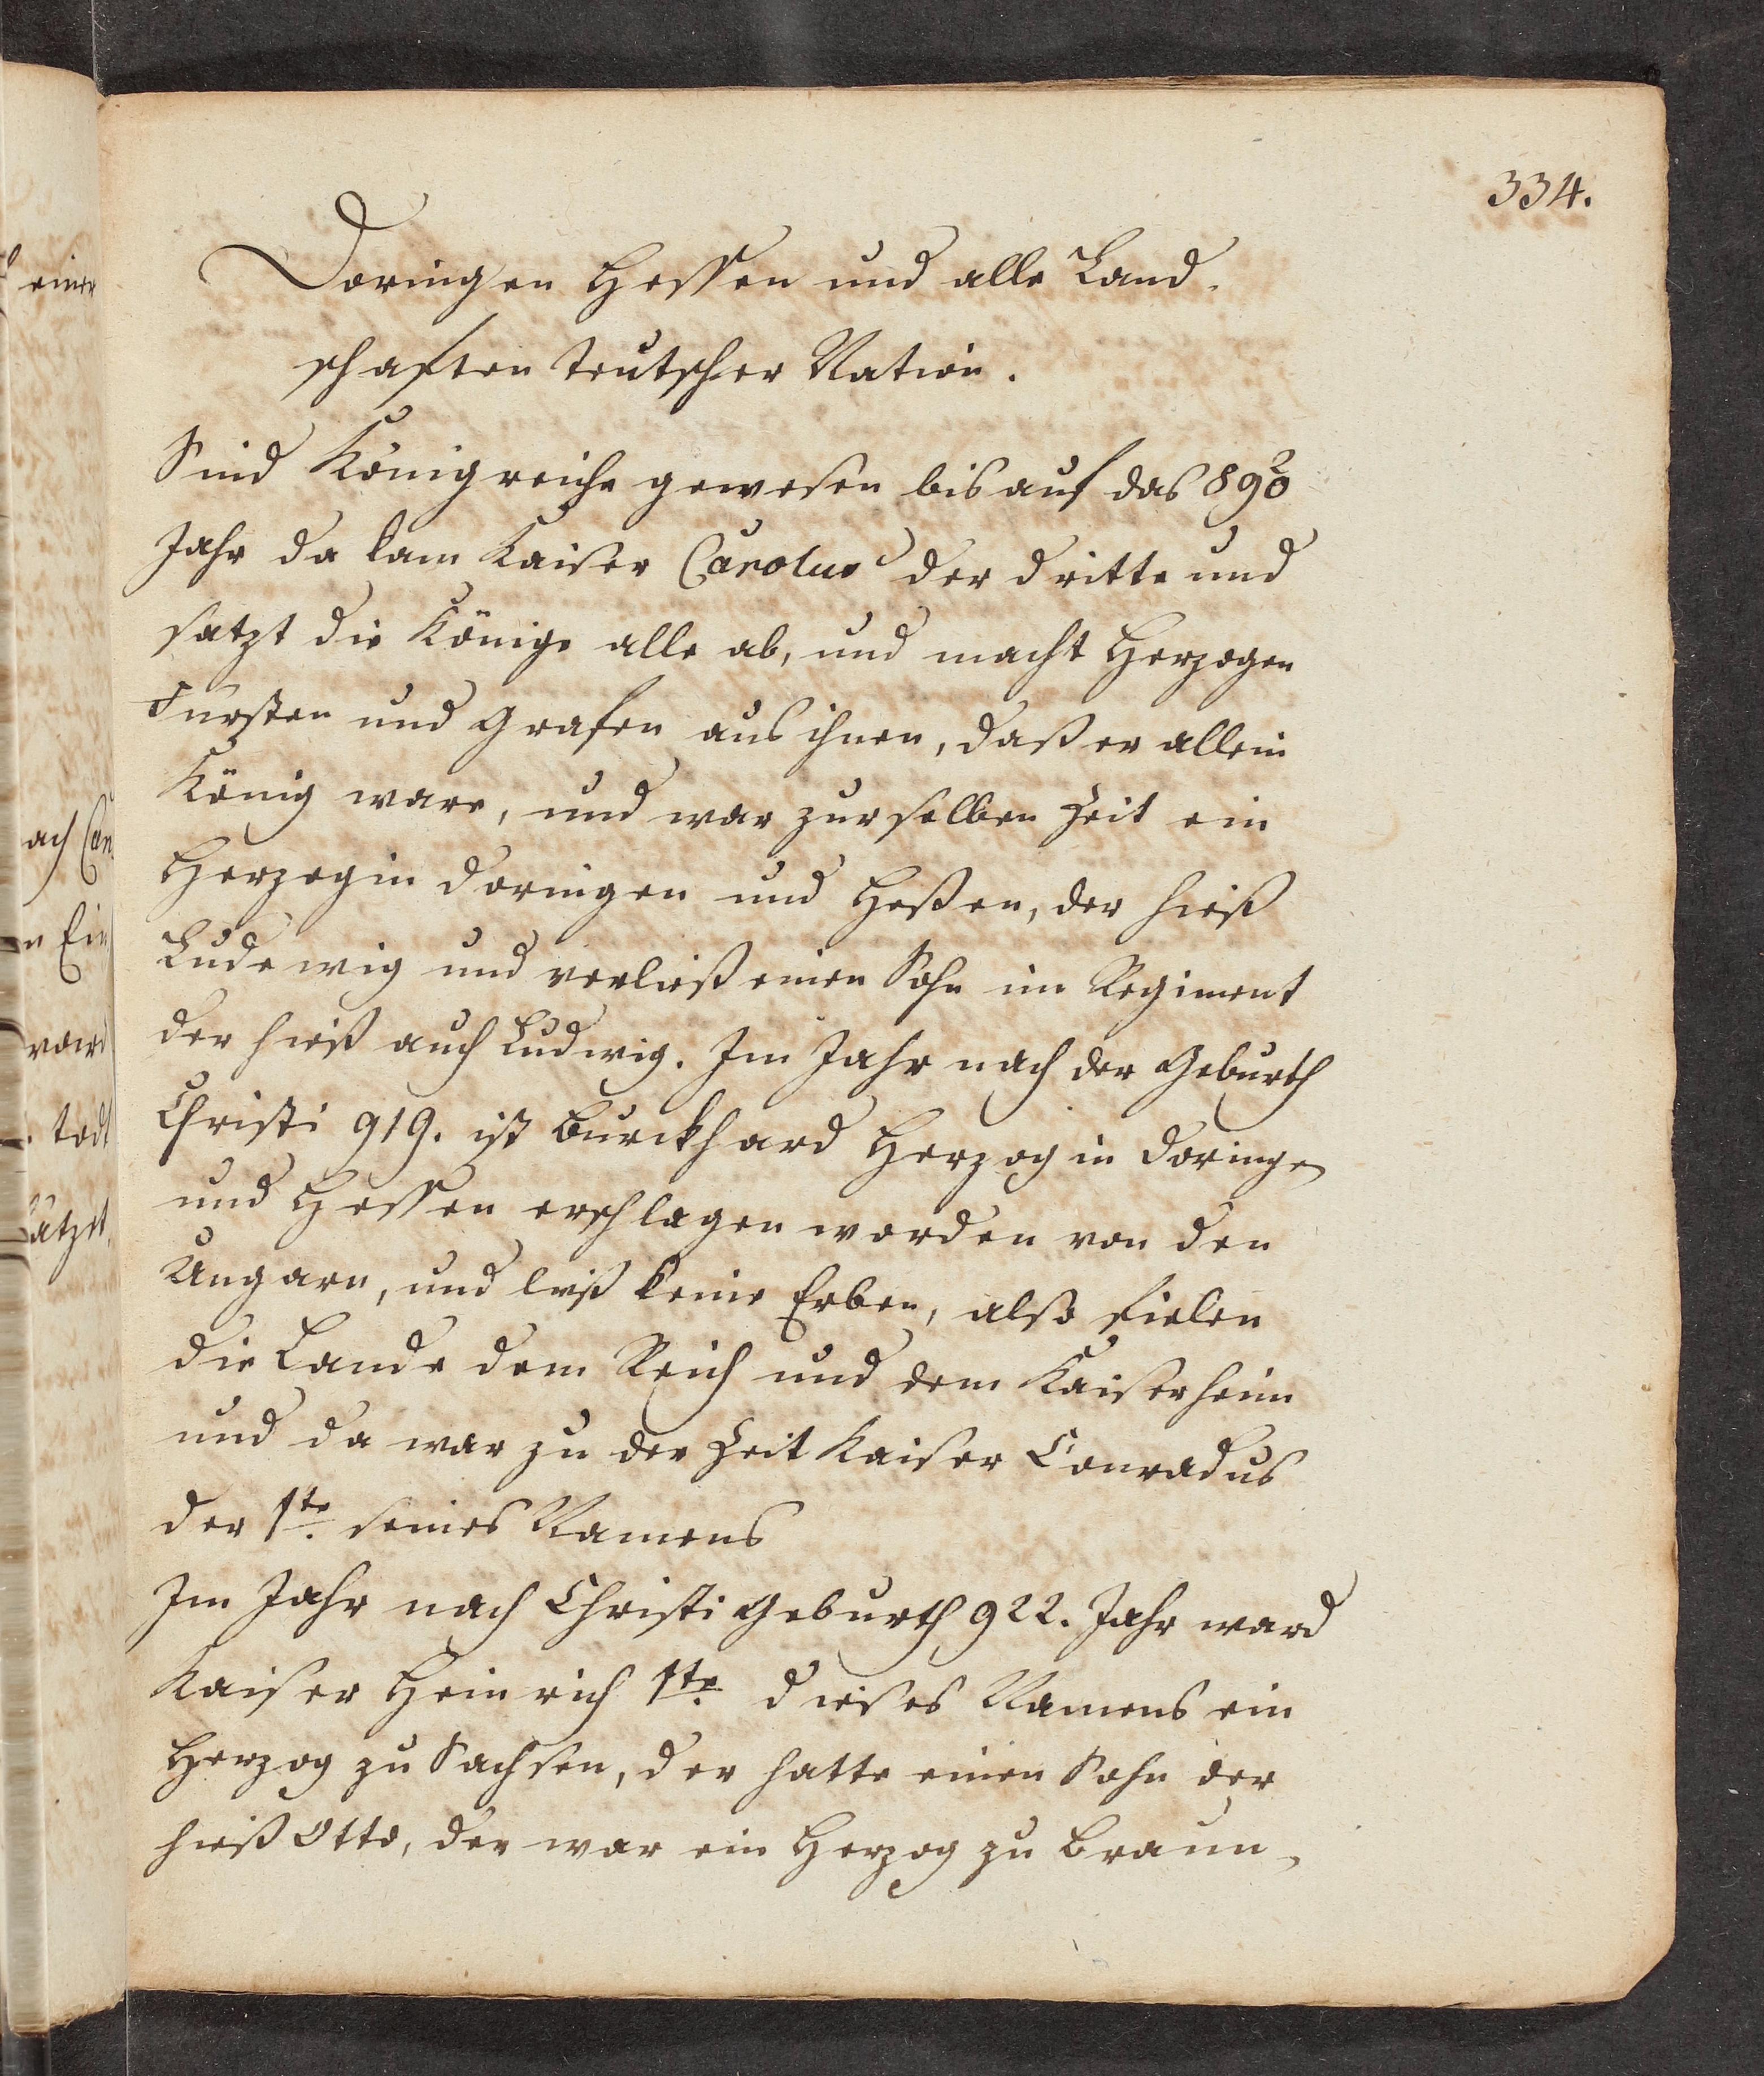 334.
Doringen Hessen und alle Land-
schaften teutscher Nation.
Sind Königreiche gewesen bis auf das 890
Jahr da kam Kaiser Carolus der dritte und
satzt die Könige alle ab, und macht Herzogen
Fürsten und Grafen aus ihnen, daß er allein
König ware, und war zur selben Zeit ein
Herzog in Doringen und Heßen, der hieß
Ludewig und verließ einen Sohn im Regiment
der hieß auch Ludwig. Im Jahr nach der Geburth
Christi 919. ist Burckhard Herzog in Doringen
und Hessen erschlagen worden von den
Ungarn, und ließ keine Erben, also fielen
die Lande dem Reich und dem Kaiser heim
und da war zu der Zeit Kaiser Conradus
der 1te. seines Namens
Im Jahr nach Christi Geburth 922. Jahr ward
Kaiser Heinrich 1te. dieses Namens ein
Herzog zu Sachsen, der hatte einen Sohn der
hieß Otto, der war ein Herzog zu Braun-